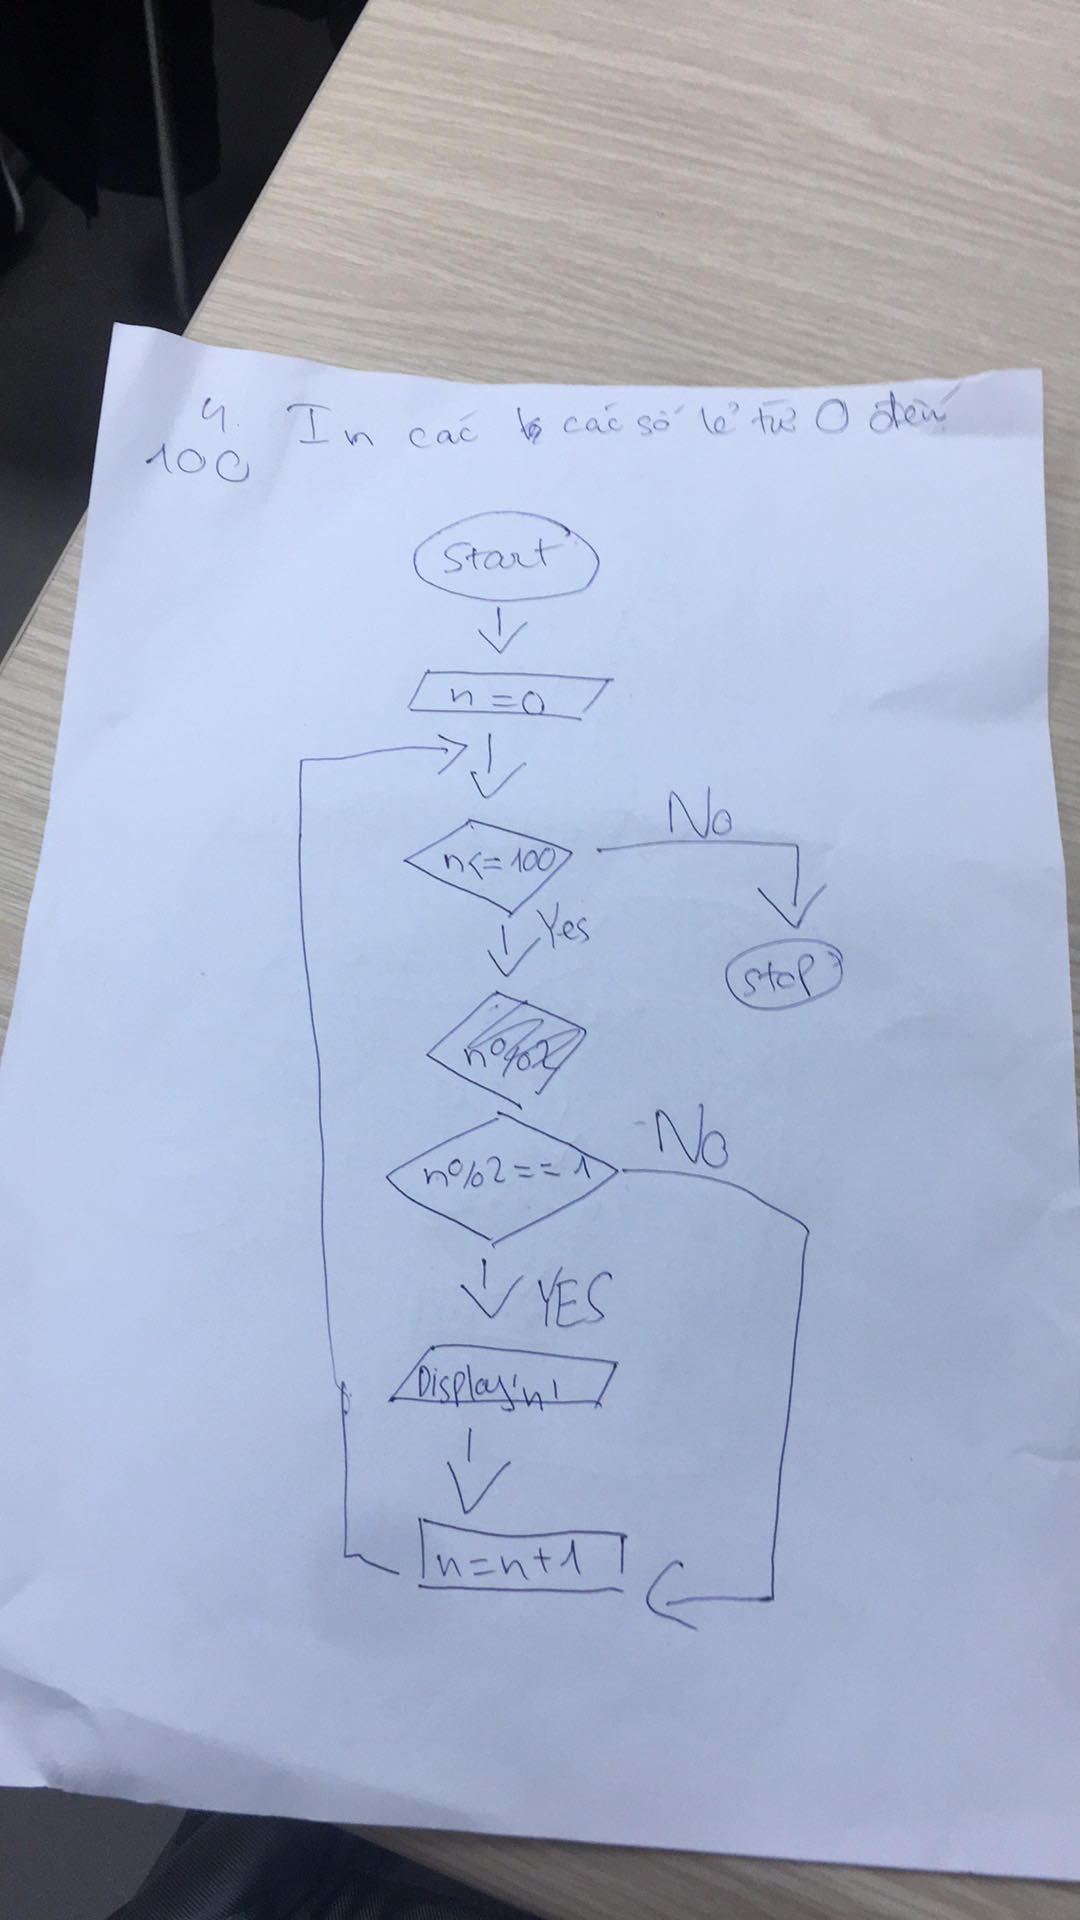 4. In các các số lẻ từ 0 đến
100
Start
n=0
n<=100
No
Yes
stop
n%2==1
No
YES
Display 'n'
n=n+1